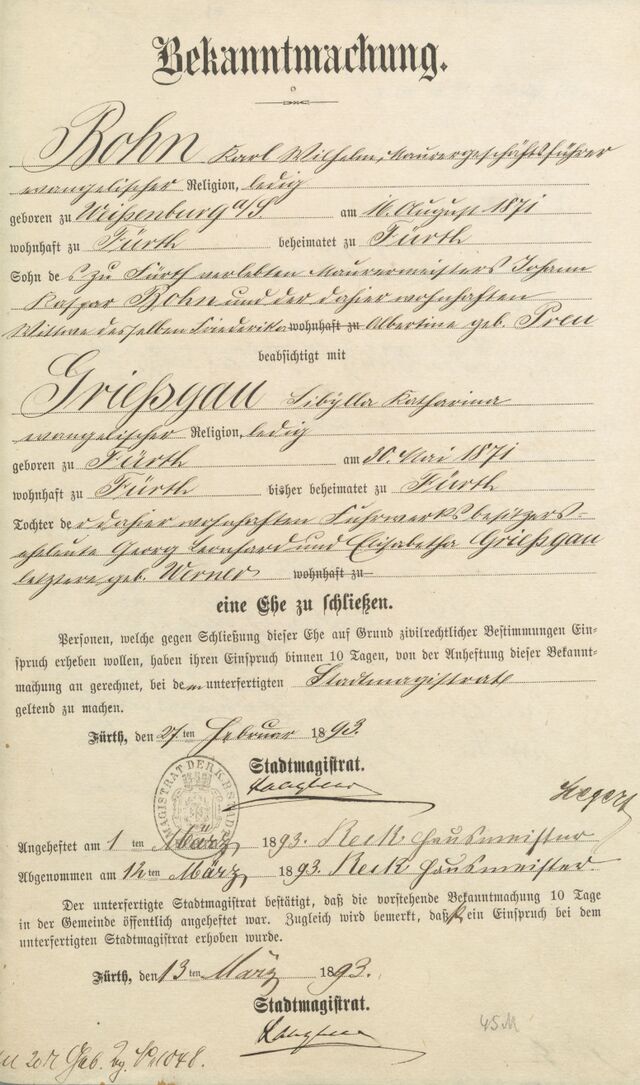 Bekanntmachung.
Bohn Karl Wilhelm, Maurergeschäftsführer
evangelischer Religion, ledig
geboren zu Weißenburg a/S. am 16. August 1871
wohnhaft zu Fürth beheimatet zu Fürth
Sohn des zu Fürth verlebten Maurermeisters Johann
Kaspar Bohn und der dahier wohnhaften
Wittwe desselben Friederika wohnhaft zu Albertine geb. Preu
beabsichtigt mit
Grießgau Sibylla Katharina
evangelischer Religion, ledig
geboren zu Fürth am 30. Mai 1871
wohnhaft zu Fürth bisher beheimatet zu Fürth
Tochter der dahier wohnhaften Fuhrwerksbesitzers-
eheleute Georg Leonhard und Elisabetha Grießgau
letztere geb. Werner wohnhaft zu
eine Ehe zu schließen.
Personen, welche gegen Schließung dieser Ehe auf Grund zivilrechtlicher Bestimmungen Ein-
spruch erheben wollen, haben ihren Einspruch binnen 10 Tagen, von der Anheftung dieser Bekannt-
machung an gerechnet, bei dem unterfertigten Stadtmagistrate
geltend zu machen.
Fürth, den 27ten Februar 1893.
Stadtmagistrat.
MAGISTRAT DER K.B. STADT
Angeheftet am 1ten März 1893. Reck Hausmeister
Abgenommen am 12ten März 1893. Reck Hausmeister.
Der unterfertigte Stadtmagistrat bestätigt, daß die vorstehende Bekanntmachung 10 Tage
in der Gemeinde öffentlich angeheftet war. Zugleich wird bemerkt, daß kein Einspruch bei dem
unterfertigten Stadtmagistrat erhoben wurde.
Fürth, den 13ten März 1893.
Stadtmagistrat.
45 M